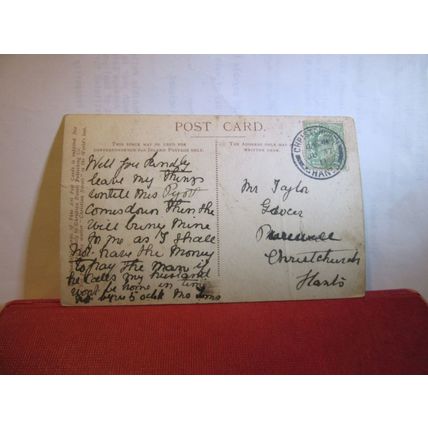 POST CARD.
THIS SPACE MAY BE USED FOR
CORRESPONDENCE FOR INLAND POSTAGE ONLY.
THE ADDRESS ONLY MAY BE
WRITTEN HERE.
CHRISTCHURCH
HANTS
Will you kindly
leave my things
untill Mrs
comes down then she
will bring mine
to me as I shall
not have the money
to pay the man if
he calls my husband
wont be home in time
5 oclk Mrs
Mr Taylor
Grocer
Christchurch
Hants